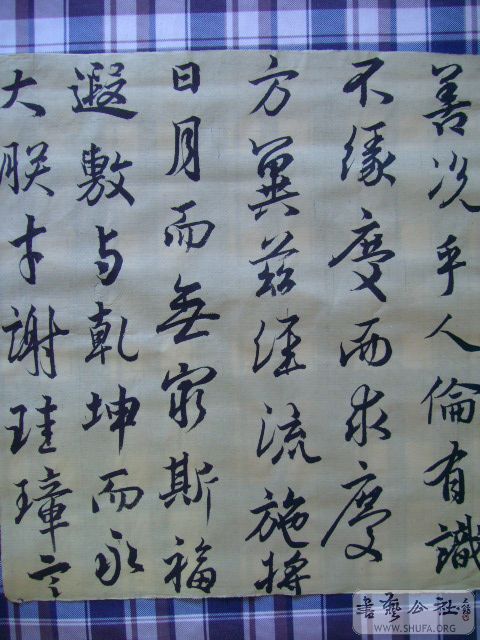 善况乎人倫有識
不緣慶而求慶
方冀茲經流施將
日月而無窮斯福
遐敷与乾坤而永
大朕才謝珪璋言
書藝公社
WWW.SHUFA.ORG